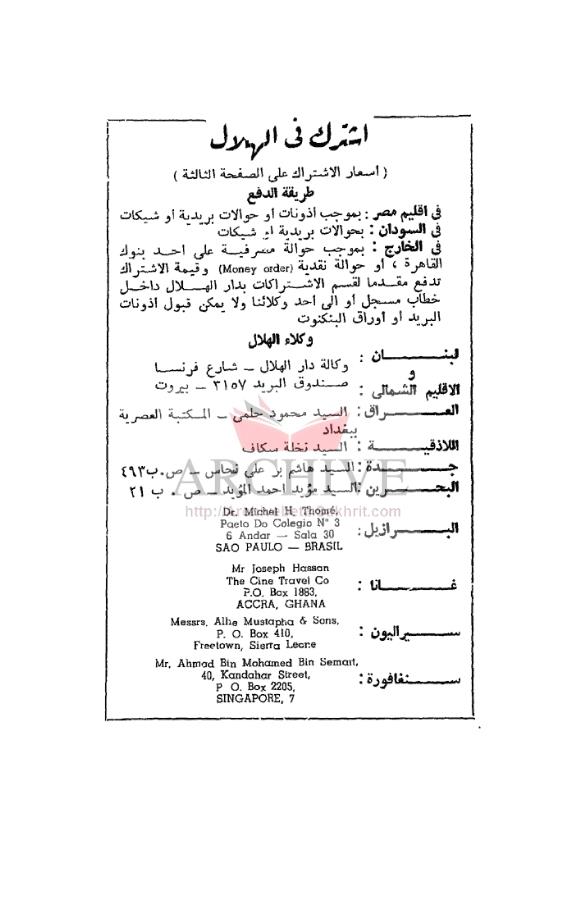 اشترك فى الهلال
( اسعار الاشتراك على الصفحة الثالثة )
طريقة الدفع
فى اقليم مصر : بموجب اذونات او حوالات بريدية أو شيكات
فى السودان : بحوالات بريدية او شيكات
فى الخارج : بموجب حوالة مصرفية على احد بنوك
القاهرة ، أو حوالة نقدية (Money order) وقيمة الاشتراك
تدفع مقدما لقسم الاشتراكات بدار الهلال داخل
خطاب مسجل أو الى احد وكلائنا ولا يمكن قبول اذونات
البريد أو أوراق البنكنوت
وكلاء الهلال
لبنان :
و
الاقليم الشمالى :
وكالة دار الهلال ــ شارع فرنسا
صندوق البريد ٣١٥٧ ــ بيروت
العراق : السيد محمود حلمى ــ المكتبة العصرية
ببغداد
اللاذقية : السيد نخلة سكاف
جدة : السيد هاشم بر على نحاس ــ ص.ب ٤٩٣
البحرين : السيد مؤيد احمد المؤيد ــ ص . ب ٢١
ARCHIVE
البرازيل :
Dr. Michel H. Thomé,
Paeto Do Colegio N° 3
6 Andar — Sala 30
SAO PAULO — BRASIL
غانا :
Mr Joseph Hassan
The Cine Travel Co
P.O. Box 1883,
ACCRA, GHANA
سيراليون :
Messrs, Alhe Mustapha & Sons,
P. O. Box 410,
Freetown, Sierra Leone
سنغافورة :
Mr, Ahmad Bin Mohamed Bin Semart,
40, Kandahar Street,
P O. Box 2205,
SINGAPORE, 7